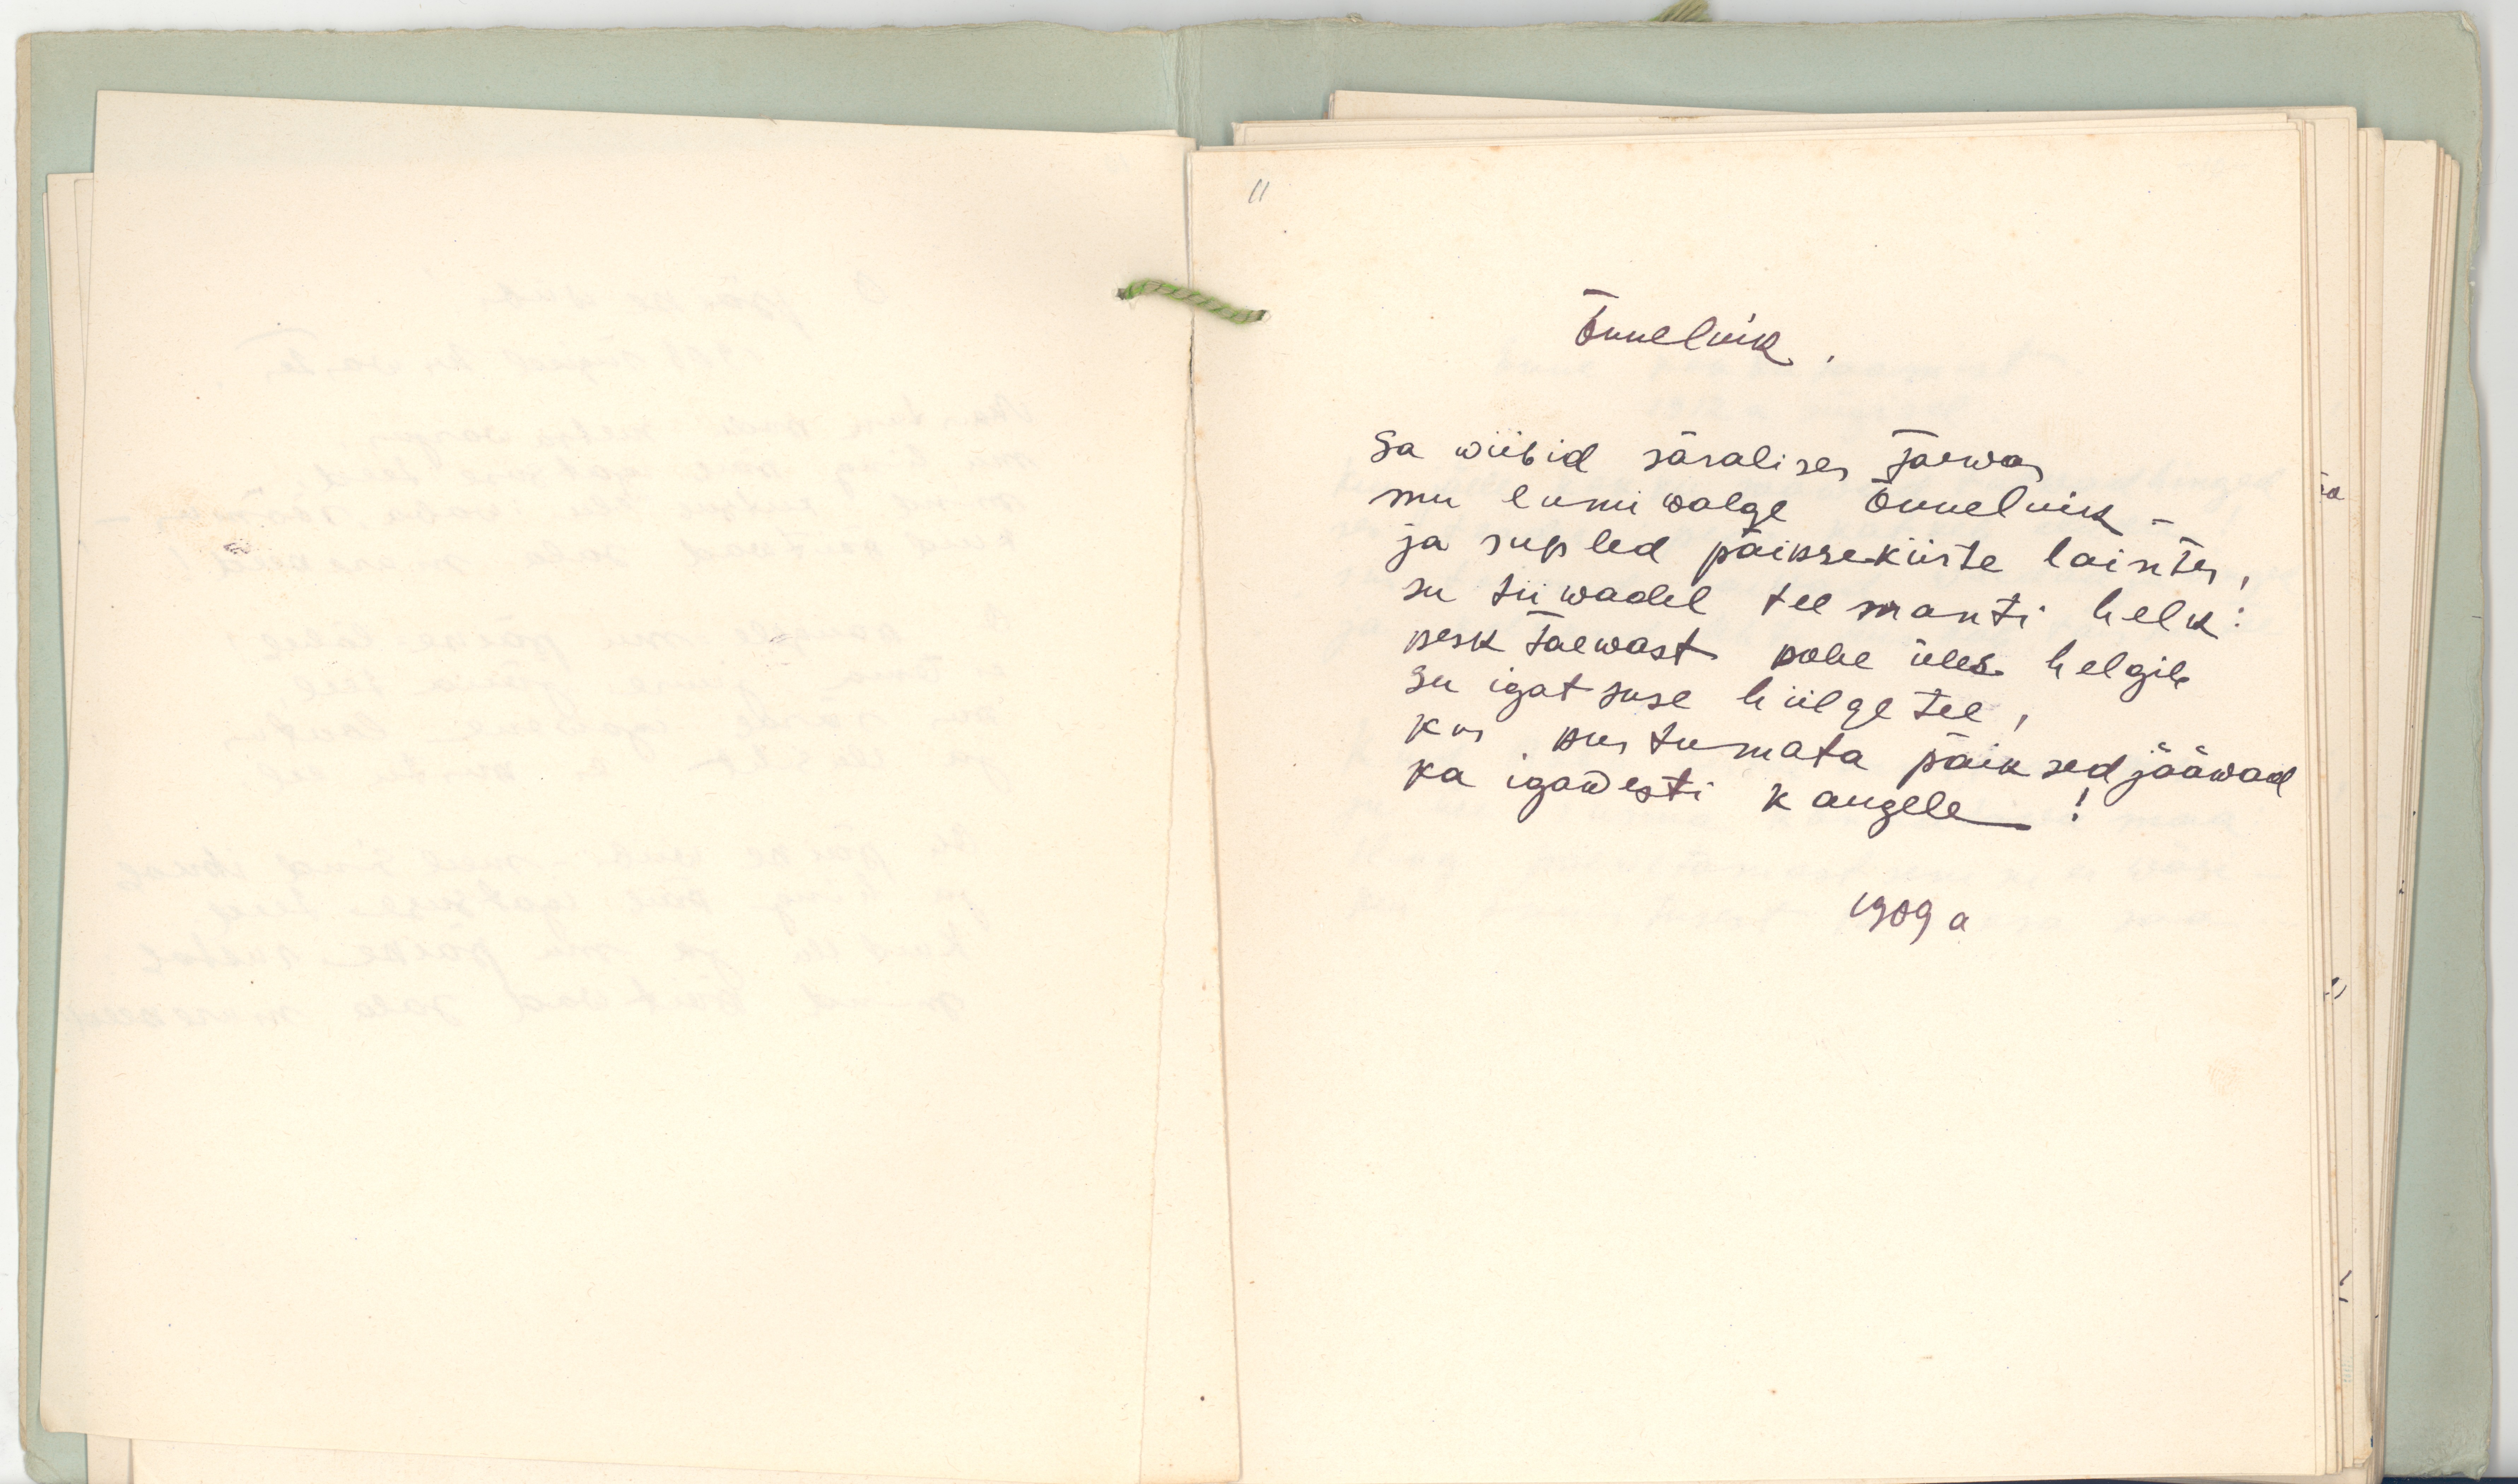 11
Õnneluik.
Sa wiibid säralises järwes
mu lumiwalge Õnneluik –
ja supled päiksekiirte laintes,
su tiiwadel teemanti helk:
kesk taewast kohe üles helgib
su igatsuse hiilge tee,
kus kustumata päiksed jääwad
ka igawesti kaugele!
1909 a